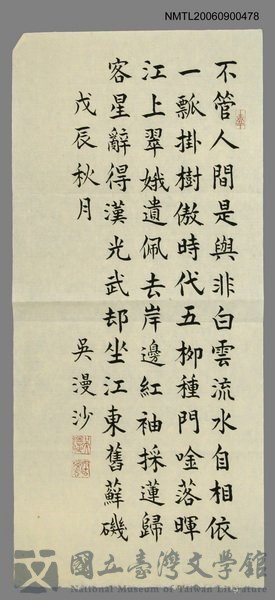 NMTL20060900478
不管人間是與非白雲流水自相依
一瓢掛樹傲時代五柳種門唫落暉
江上翠娥遺佩去岸邊紅袖採蓮歸
客星辭得漢光武却坐江東舊蘚磯
戊辰秋月
吳漫沙
國立臺灣文學館
National Museum of Taiwan Literature